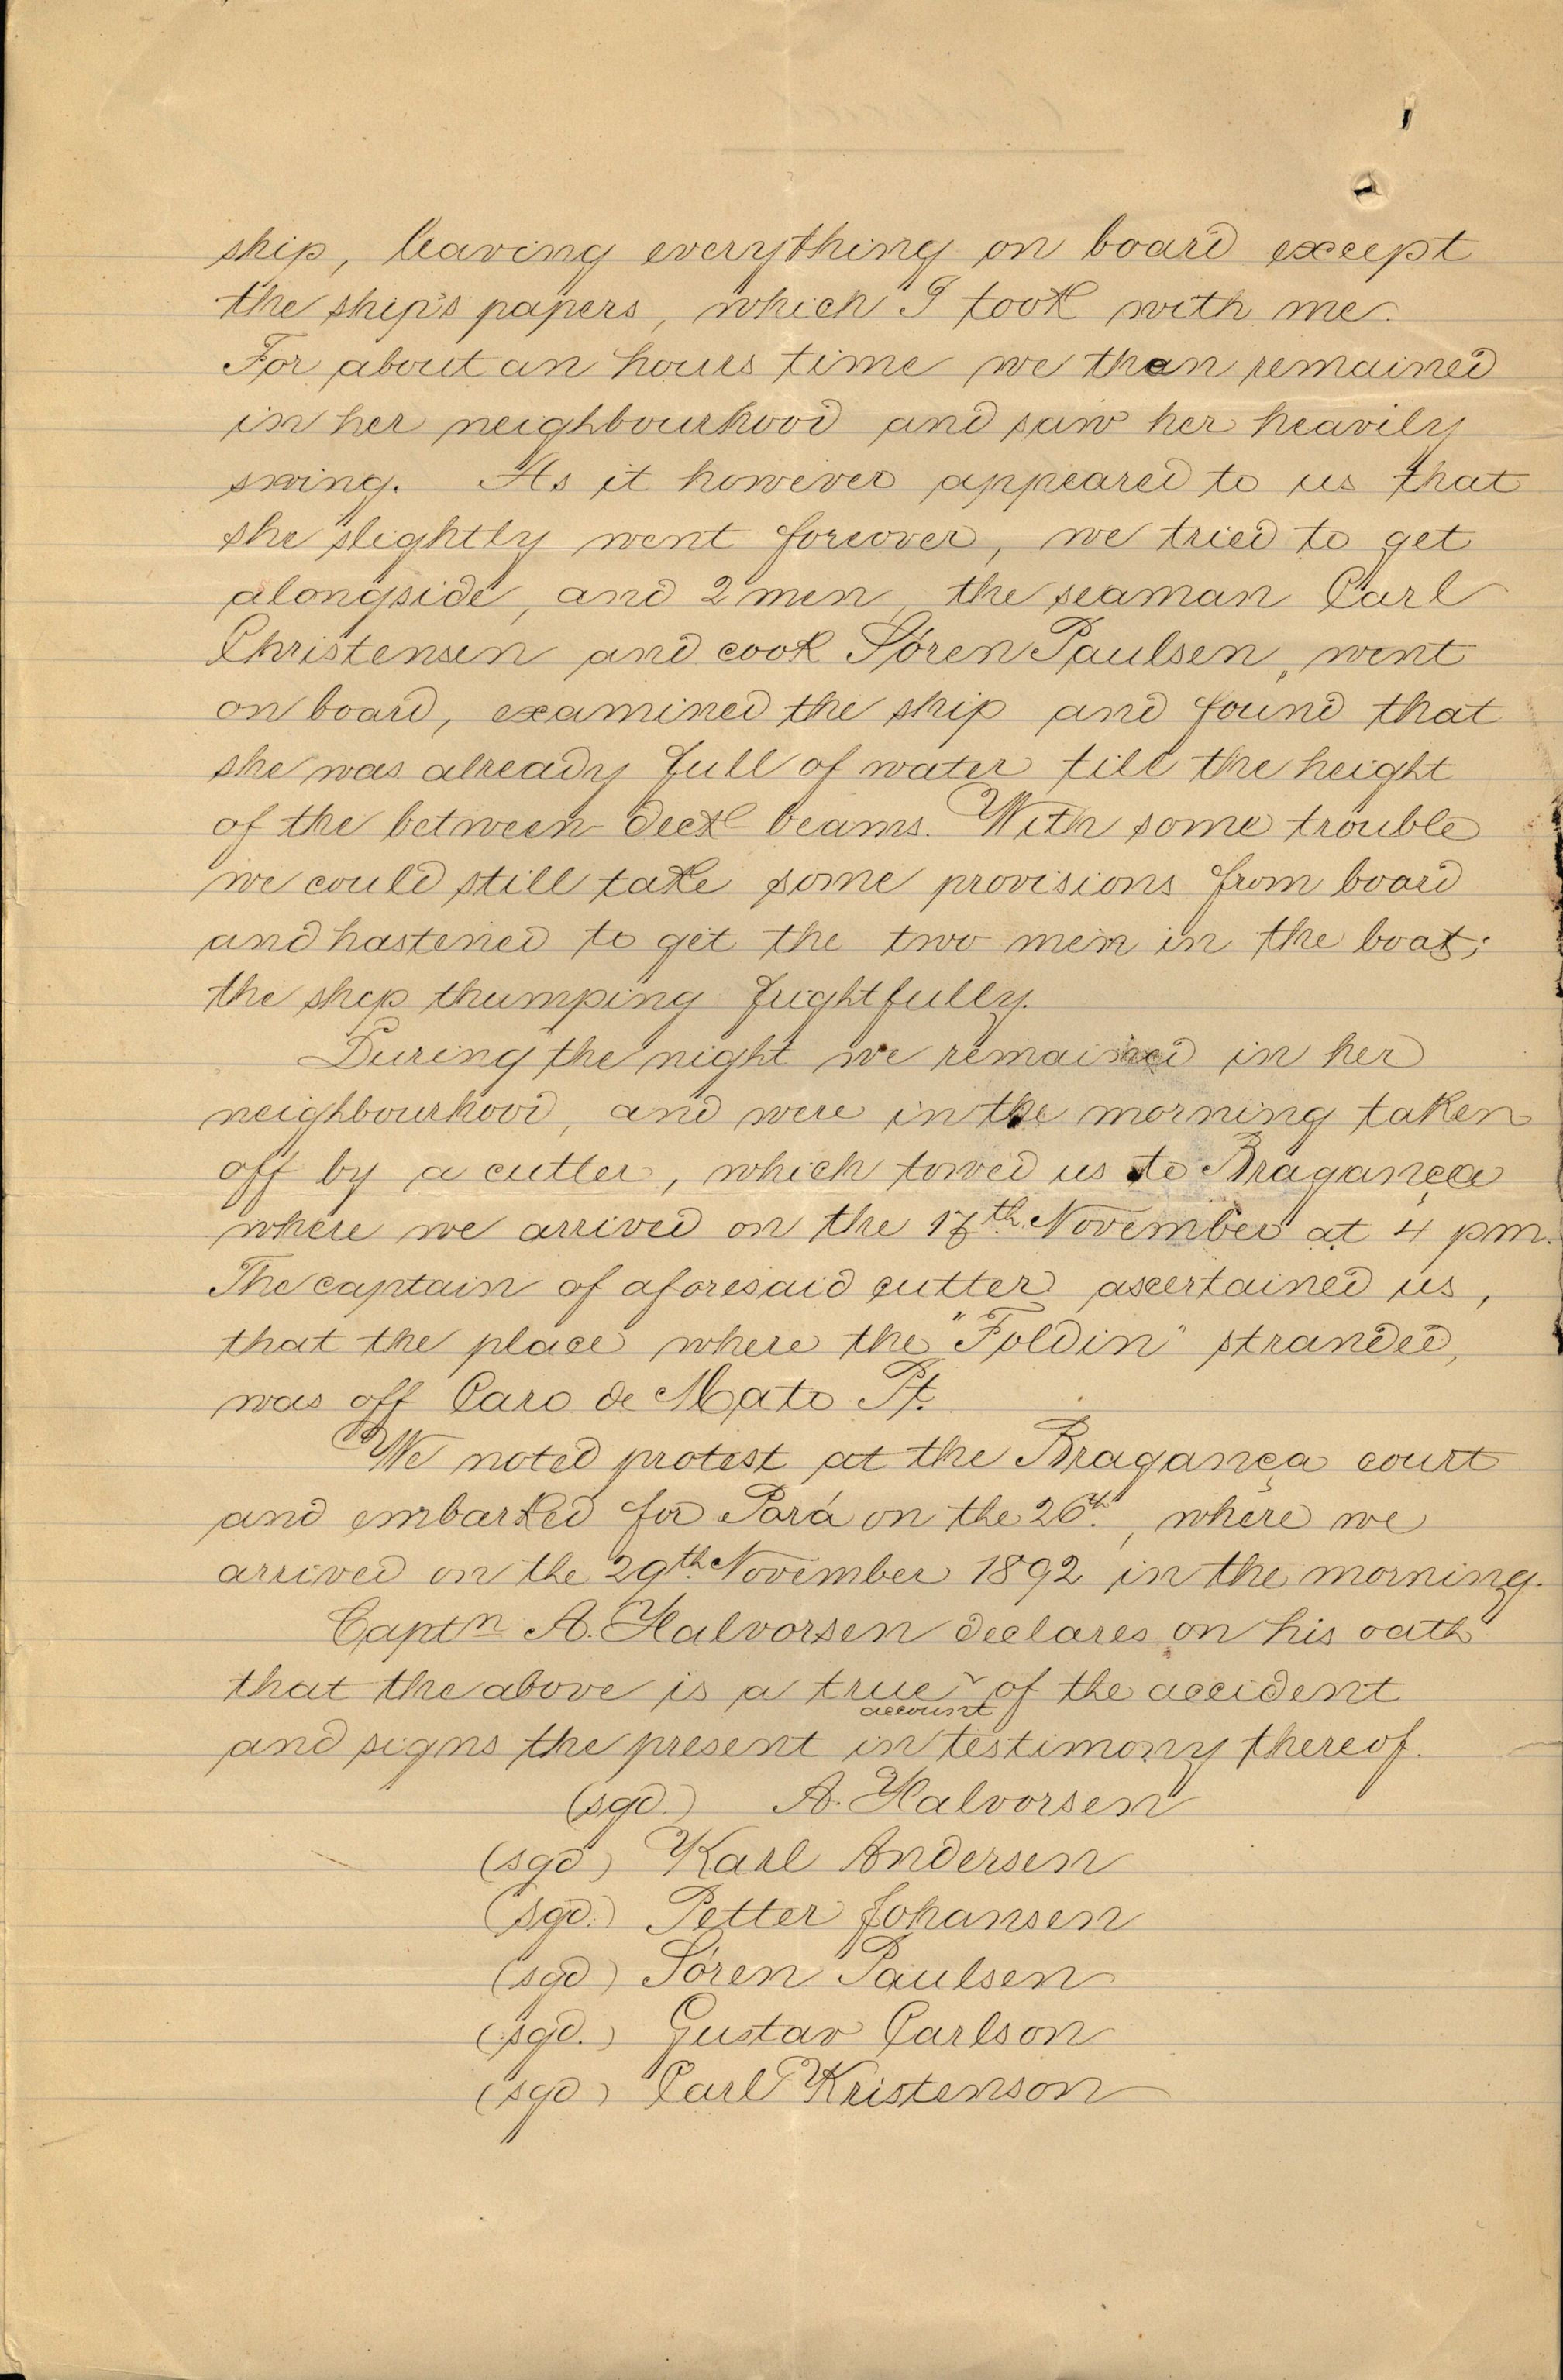 ship, leaving everything on board except
the ship's papers, which I took with me.
For about an hours time we then remained
in her neighbourhood and saw her heavily
swing. As it however appeared to us that
she slightly went foreover, we tried to get
alongside, and 2 men, the seaman Carl
Christensen and cook Sören Paulsen, went
on board, examined the ship and found that
she was already full of water till the height
of the between-deck beams. With some trouble
we could still take some provisions from board
and hastened to get the two men in the boat;
the ship thumping frightfully.
During the night we remained in her
neighbourhood, and were in the morning taken
off by a cutter, which towed us to Bragança
where we arrived on the 17th November at 4 pm.
The captain of aforesaid cutter ascertained us,
that the place where the "Foldin" stranded,
was off Caro de Mato Pt.
We noted protest at the Bragança court
and embarked for Pará on the 26th, where we
arrived on the 29th November 1892 in the morning.
Captn A. Halvorsen declares on his oath
that the above is a true account of the accident
and signs the present in testimony thereof.
(sgd.) A. Halvorsen
(sgd) Karl Andersen
(sgd.) Petter Johansen
(sgd) Sören Paulsen
(sgd.) Gustav Carlson
(sgd) Carl Kristenson